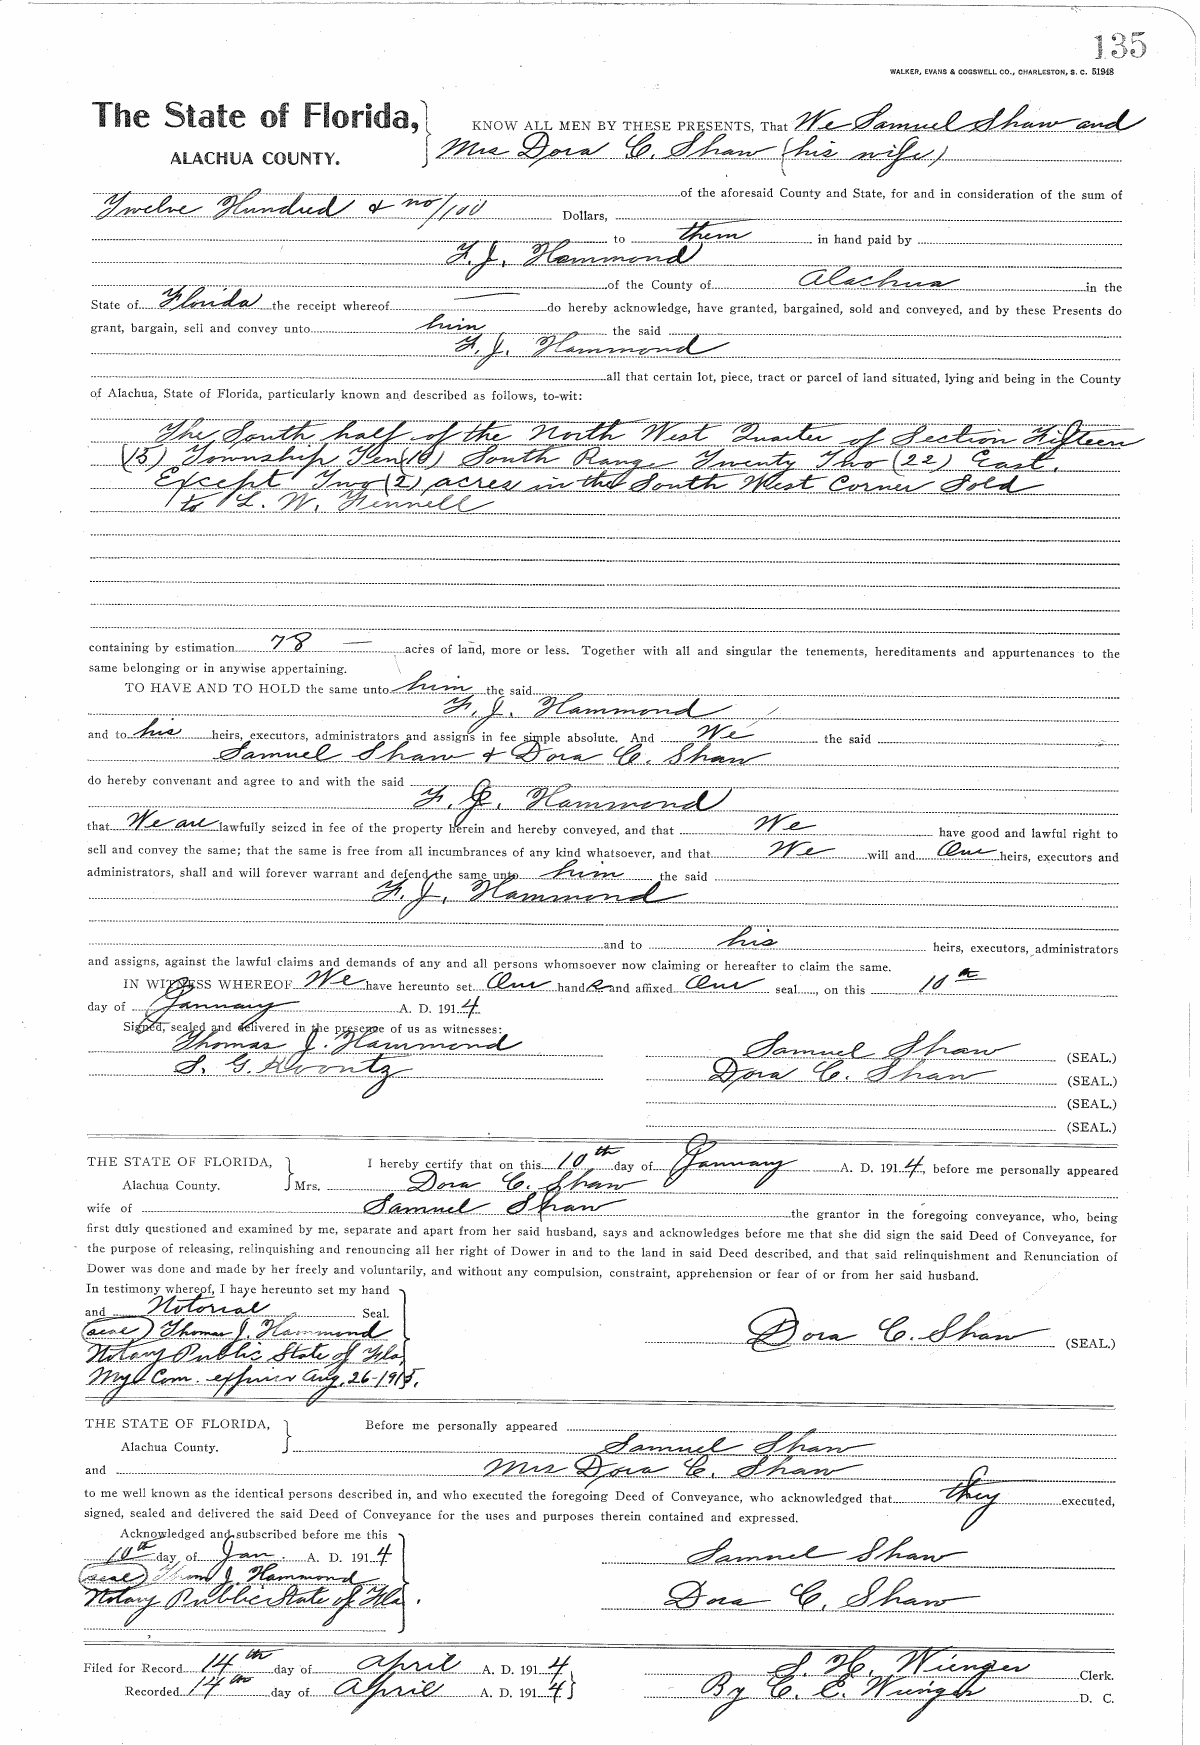 135
WALKER, EVANS & COGSWELL CO., CHARLESTON, S. C. 51948
The State of Florida,
ALACHUA COUNTY.
KNOW ALL MEN BY THESE PRESENTS, That We Samuel Shaw and
Mrs Dora C. Shaw (his wife)
of the aforesaid County and State, for and in consideration of the sum of
Twelve Hundred & no/100 Dollars,
to them in hand paid by
F. J. Hammond
of the County of Alachua in the
State of Florida the receipt whereof do hereby acknowledge, have granted, bargained, sold and conveyed, and by these Presents do
grant, bargain, sell and convey unto him the said
F. J. Hammond
all that certain lot, piece, tract or parcel of land situated, lying and being in the County
of Alachua, State of Florida, particularly known and described as follows, to-wit:
The South half of the North West Quarter of Section Fifteen
(15) Township Ten (10) South Range Twenty Two (22) East.
Except Two (2) acres in the South West Corner Sold
to L. W. Fennell
containing by estimation 78 — acres of land, more or less. Together with all and singular the tenements, hereditaments and appurtenances to the
same belonging or in anywise appertaining.
TO HAVE AND TO HOLD the same unto him the said
F. J. Hammond
and to his heirs, executors, administrators and assigns in fee simple absolute. And We the said
Samuel Shaw & Dora C. Shaw
do hereby convenant and agree to and with the said
F. J. Hammond
that We are lawfully seized in fee of the property herein and hereby conveyed, and that We have good and lawful right to
sell and convey the same; that the same is free from all incumbrances of any kind whatsoever, and that We will and Our heirs, executors and
administrators, shall and will forever warrant and defend the same unto him the said
F. J. Hammond
and to his heirs, executors, administrators
and assigns, against the lawful claims and demands of any and all persons whomsoever now claiming or hereafter to claim the same.
IN WITNESS WHEREOF We have hereunto set Our hands and affixed Our seal, on this 10th
day of January A. D. 1914
Signed, sealed and delivered in the presence of us as witnesses:
Thomas J. Hammond
S. G. Koontz
Samuel Shaw (SEAL.)
Dora C. Shaw (SEAL.)
(SEAL.)
(SEAL.)
THE STATE OF FLORIDA,
Alachua County.
I hereby certify that on this 10th day of January A. D. 1914, before me personally appeared
Mrs. Dora C. Shaw
wife of Samuel Shaw the grantor in the foregoing conveyance, who, being
first duly questioned and examined by me, separate and apart from her said husband, says and acknowledges before me that she did sign the said Deed of Conveyance, for
the purpose of releasing, relinquishing and renouncing all her right of Dower in and to the land in said Deed described, and that said relinquishment and Renunciation of
Dower was done and made by her freely and voluntarily, and without any compulsion, constraint, apprehension or fear of or from her said husband.
In testimony whereof, I have hereunto set my hand
and Notorial Seal.
(seal) Thomas J. Hammond
Notary Public State of Fla,
My Com. expires Aug. 26-1915.
Dora C. Shaw (SEAL)
THE STATE OF FLORIDA,
Alachua County.
Before me personally appeared
Samuel Shaw
and Mrs Dora C. Shaw
to me well known as the identical persons described in, and who executed the foregoing Deed of Conveyance, who acknowledged that they executed,
signed, sealed and delivered the said Deed of Conveyance for the uses and purposes therein contained and expressed.
Acknowledged and subscribed before me this
10th day of Jan. A. D. 1914
(seal) Thom J. Hammond
Notary Public State of Fla.
Samuel Shaw
Dora C. Shaw
Filed for Record 14th day of April A. D. 1914
Recorded 14th day of April A. D. 1914
S. H. Wienger Clerk.
By C. E. Wienger D. C.